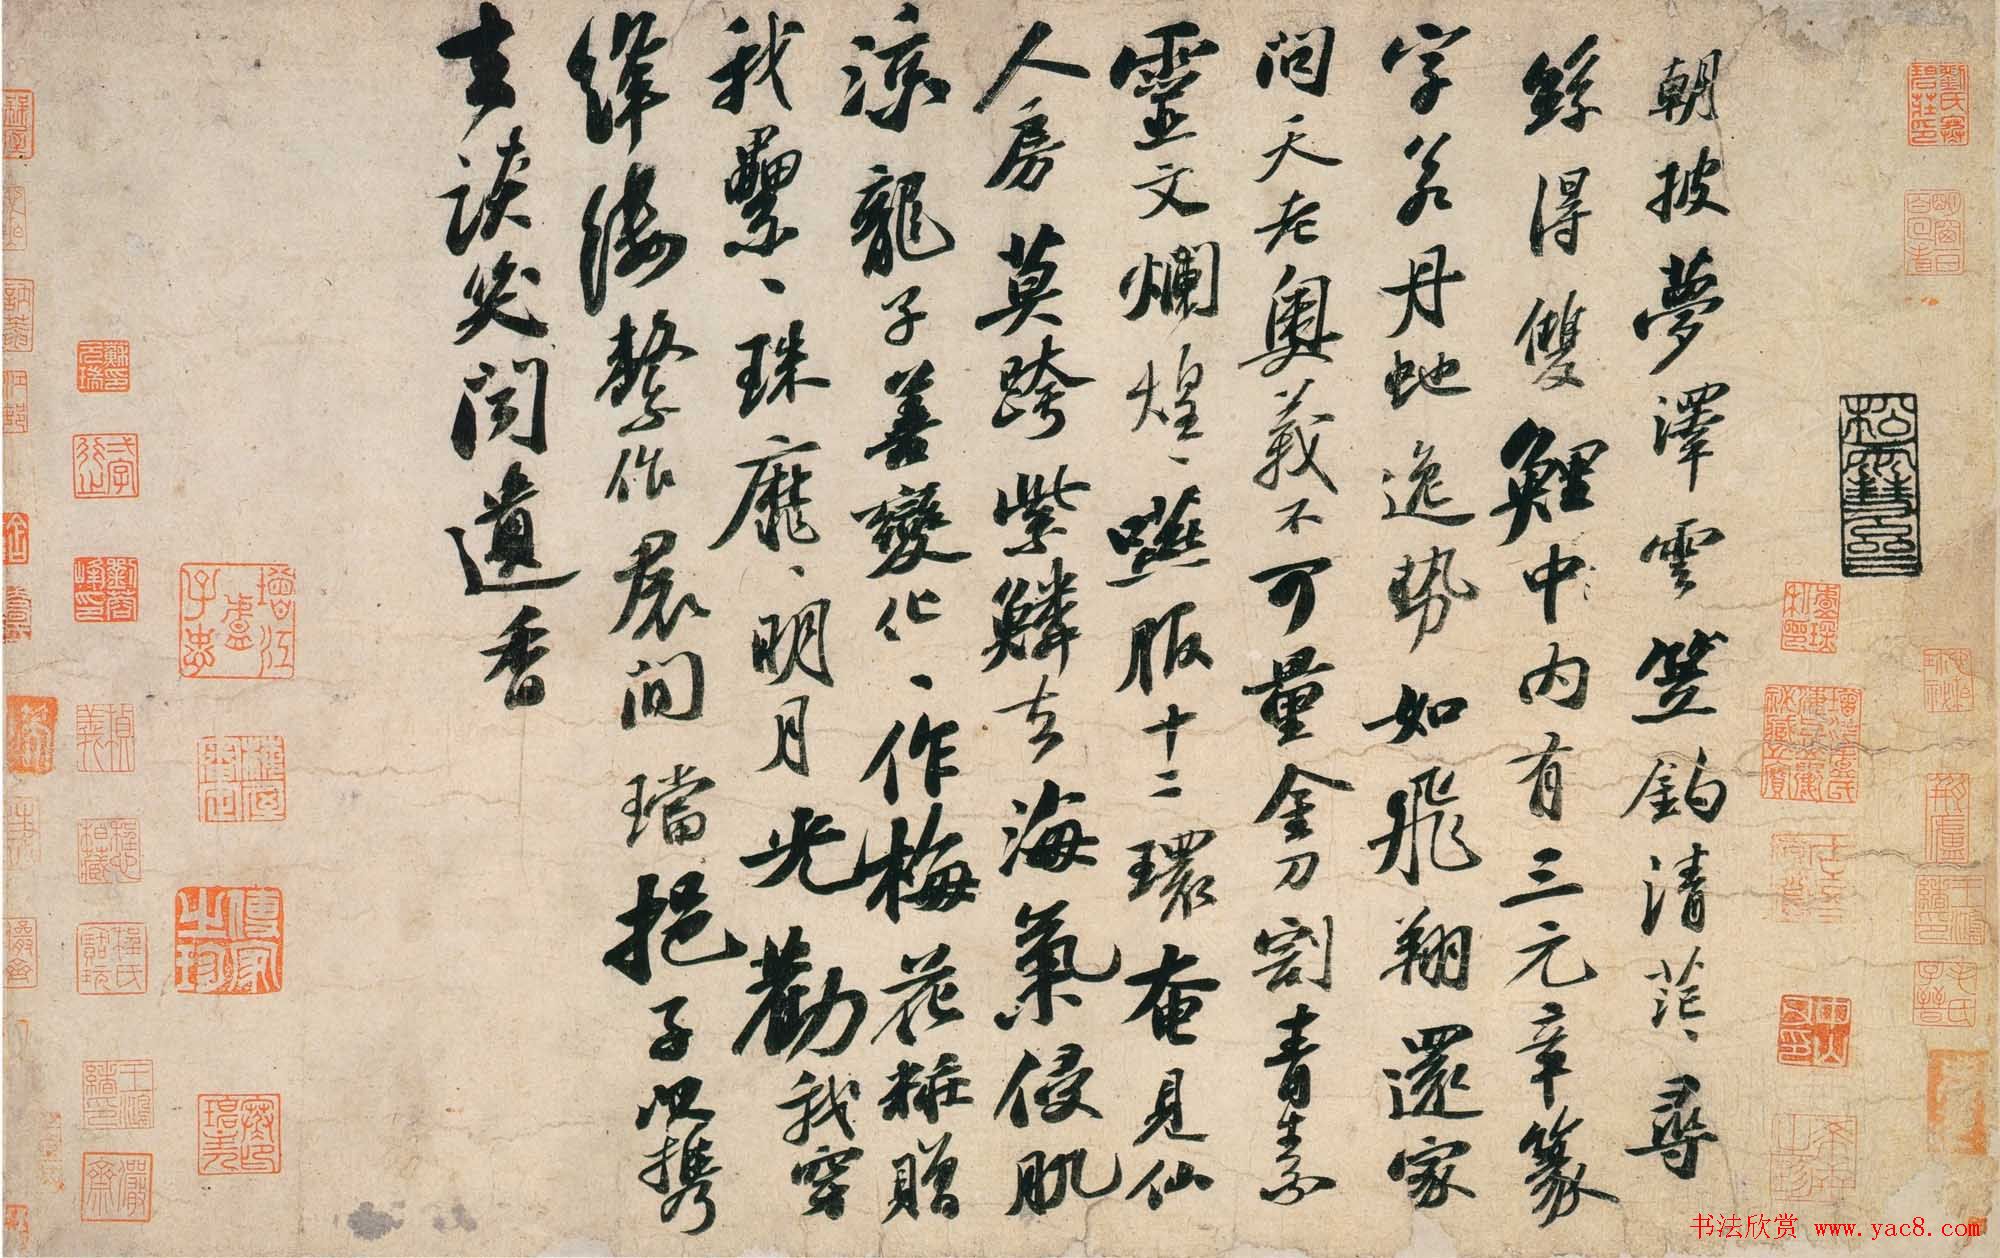 朝披夢澤雲笠釣清茫〻尋
絲得雙鯉中内有三元章篆
字若丹虵逸勢如飛翔還家
問天老奧義不可量金刀割青素
靈文爛煌〻嚥服十二環奄見仙
人房莫跨紫鱗去海氣侵肌
涼龍子善變化〻作梅花粧贈
我纍〻珠靡〻明月光勸我穿
絳縷繫作裙間璫挹子以攜
去談笑聞遺香
書法欣赏 www.yac8.com